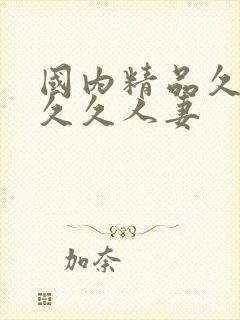 國内精品久
久久人妻
加奈